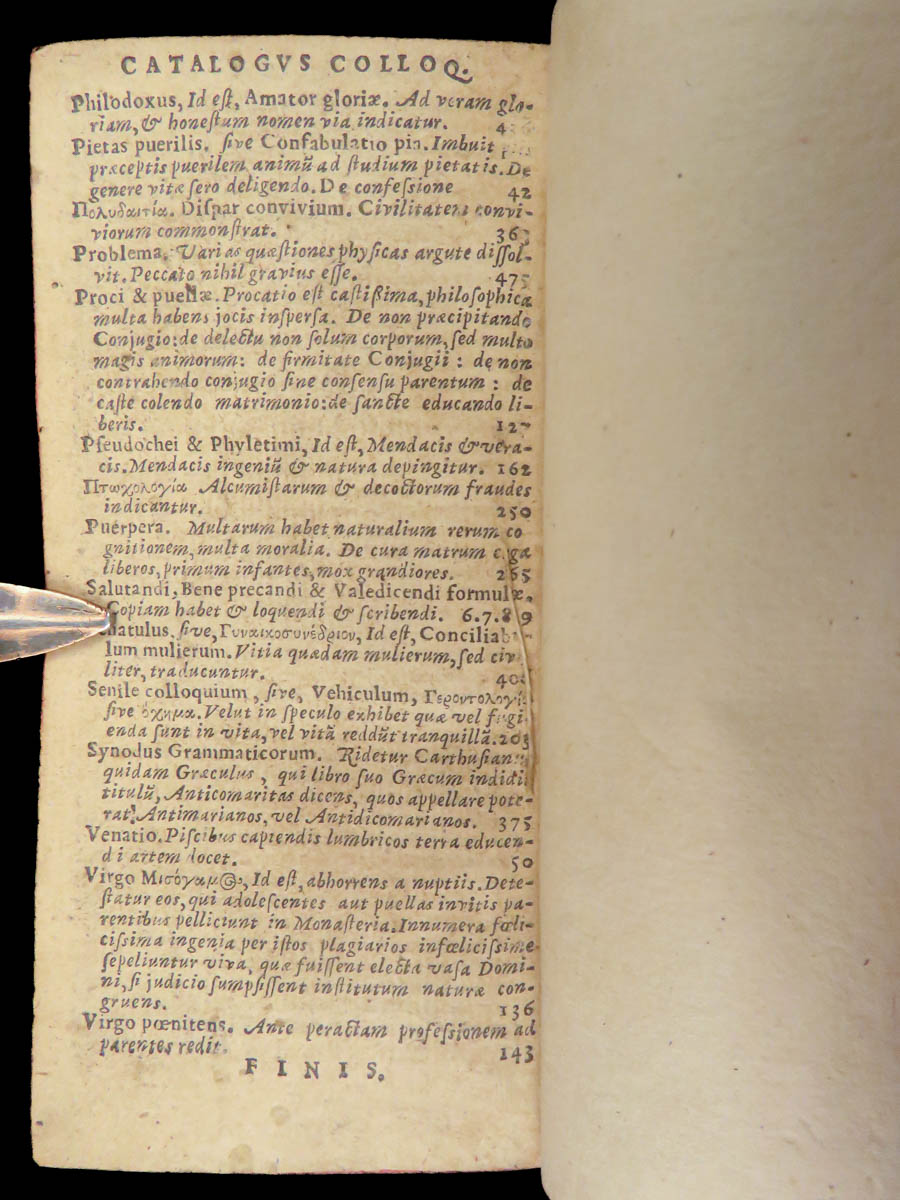 CATALOGVS COLLOQ.
Philodoxus, Id eſt, Amator gloriæ. Ad veram glo-
riam, & honeſtum nomen via indicatur.
Pietas puerilis. ſive Confabulatio pia. Imbuit
præceptis puerilem animũ ad ſtudium pietatis. De
genere vitæ ſero deligendo. De confeſsione 42
Πολυδαιτία. Diſpar convivium. Civilitatem convi-
viorum commonſtrat.
Problema. Varias quæſtiones phyſicas argute diſſol-
vit. Peccato nihil gravius eſſe. 475
Proci & puellæ. Procatio eſt caſtiſsima, philoſophica
multa habens jocis inſperſa. De non præcipitando
Conjugio: de delectu non ſolum corporum, ſed multo
magis animorum: de firmitate Conjugii : de non
contrahendo conjugio ſine conſenſu parentum : de
caſte colendo matrimonio: de ſancte educando li-
beris. 127
Pſeudochei & Phyletimi, Id eſt, Mendacis & vera-
cis. Mendacis ingeniũ & natura depingitur. 162
Πτωχολογία Alcumiſtarum & decoctorum fraudes
indicantur. 250
Puerpera. Multarum habet naturalium rerum co
gnitionem, multa moralia. De cura matrum erga
liberos, primum infantes, mox grandiores. 265
Salutandi, Bene precandi & Valedicendi formulæ.
Copiam habet & loquendi & ſcribendi. 6.7.8.9
ſive, Γυναικοσυνέδριον, Id eſt,
lum mulierum. Vitia quædam mulierum, ſed civi
liter, traducuntur.
Senile colloquium, ſive, Vehiculum, Γεροντολογία
ſive ὄχημα. Velut in ſpeculo exhibet quæ vel fugi
enda ſunt in vita, vel vitã reddũt tranquillã. 203
Synodus Grammaticorum. Ridetur Carthuſianus
quidam Græculus, qui libro ſuo Græcum indidit
titulũ, Anticomaritas dicens, quos appellare pote-
rat Antimarianos, vel Antidicomarianos. 375
Venatio. Piſcibus capiendis lumbricos terra educen-
di artem docet. 50
Virgo Μισόγαμος, Id eſt, abhorrens a nuptiis. Dete-
ſtatur eos, qui adoleſcentes aut puellas invitis pa-
rentibus pelliciunt in Monaſteria. Innumera fœli-
ciſsima ingenia per iſtos plagiarios infœliciſsime
ſepeliuntur viva, quæ fuiſſent electa vaſa Domi-
ni, ſi judicio ſumpſiſſent inſtitutum naturæ con-
gruens. 136
Virgo pœnitens. Ante peractam profeſsionem ad
parentes redit. 143
FINIS.